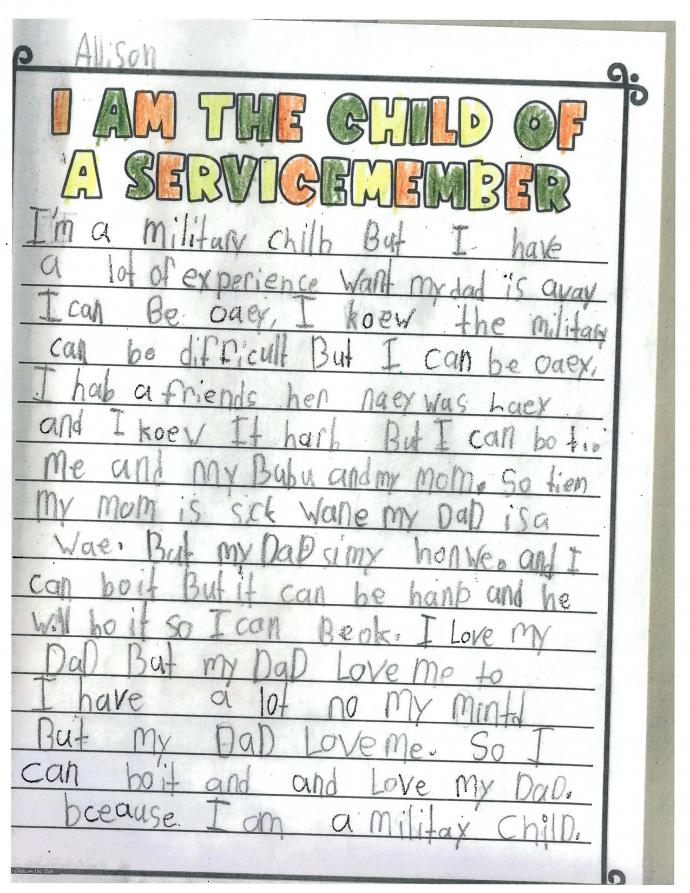 Allison
I AM THE CHILD OF
A SERVICEMEMBER
I'm a military chilb But I have
a lot of experience Want my dad is away
I can Be oaey, I koew the military
can be difficult But I can be oaey.
I hab a friends her naey was Laey
and I koew It harb But I can bo
Me and my Bubu and my mom. So tiem
My mom is sick wane my DaD is a
Wae. But my DaD si my honwe. and I
can bo it But it can be hanb and he
Will bo it so I can Be ok. I Love my
DaD But my DaD Love me to
I have a lot no my mintd
But my DaD Love me. So I
can bo it and and Love my DaD.
bceause I am a militay Child.